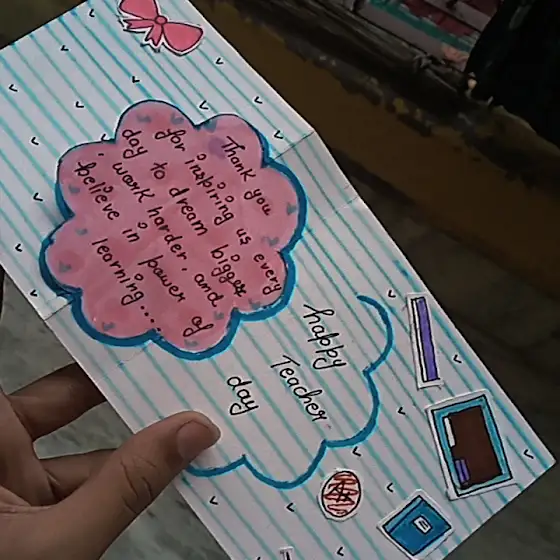 Thank you
for inspiring us every
day to dream bigger
, work harder, and
believe in power of
learning....
happy
Teacher
day